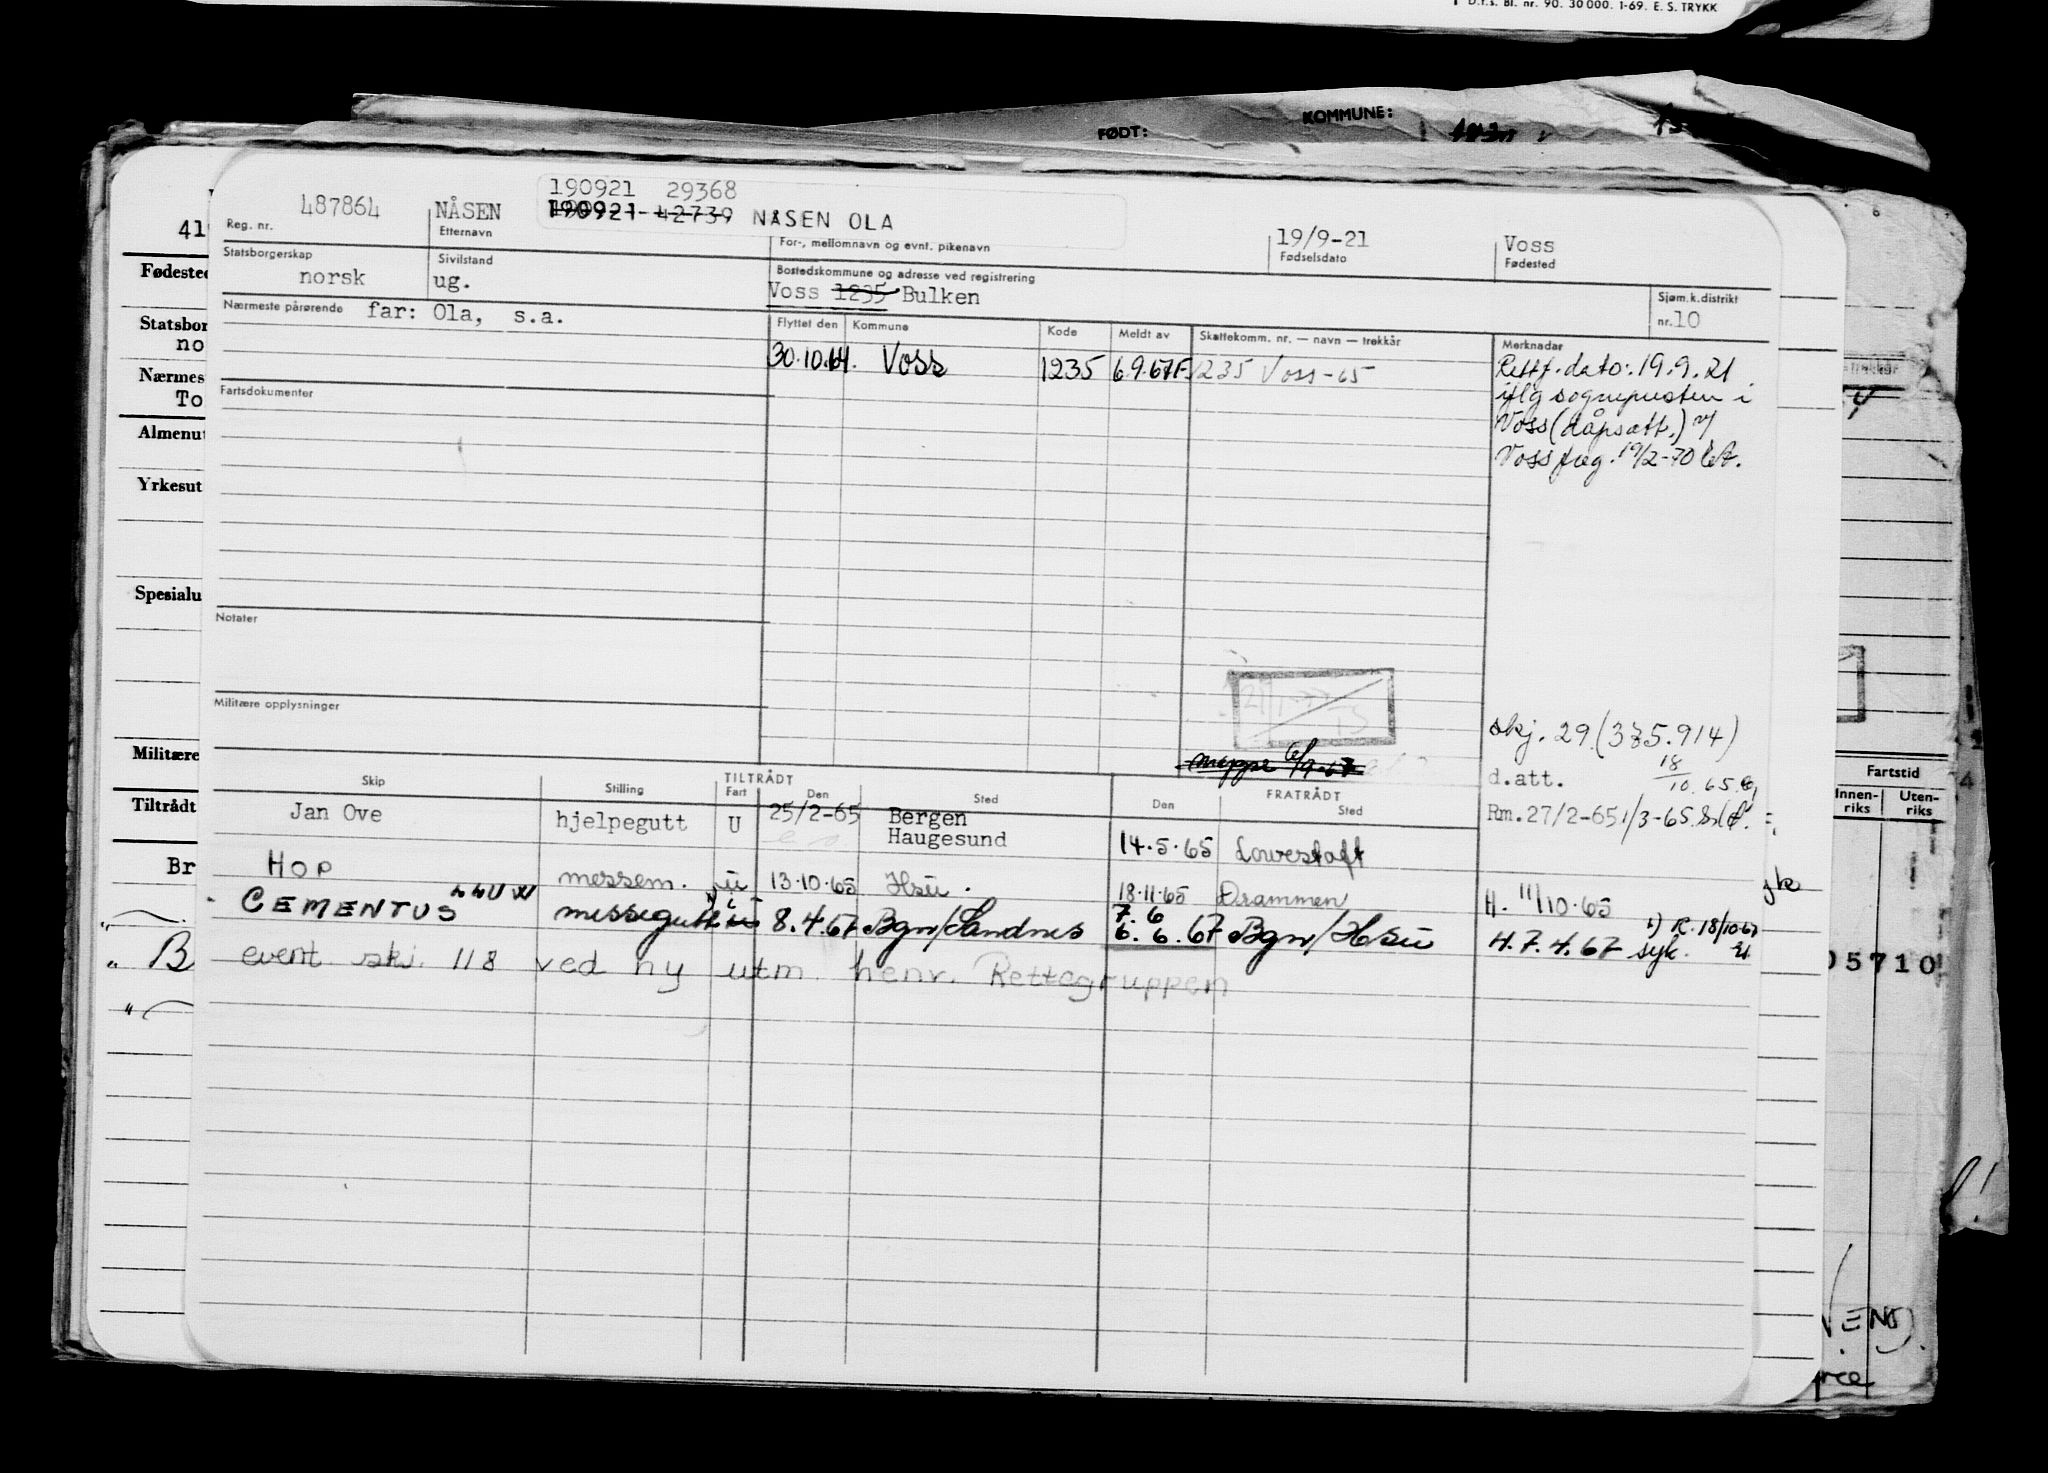 D.f.s. Bl. nr. 90. 30 000. 1-69. E. S. TRYKK
FØDT:
KOMMUNE:
190921 29368
190921-42739 NÅSEN OLA
487864
Reg. nr.
NÅSEN
Etternavn
For-, mellomnavn og evnt. pikenavn
19/9-21
Fødselsdato
Voss
Fødested
Statsborgerskap
norsk
Sivilstand
ug.
Bostedskommune og adresse ved registrering
Voss 1235 Bulken
Sjøm.k.distrikt
nr. 10
Nærmeste pårørende far: Ola, s.a.
Flyttet den Kommune Kode Meldt av Skattekomm. nr. — navn — trekkår Merknadar
30.10.64. Voss 1235 6.9.67F. 1235 Voss-65
Rettf. dato: 19.9.21
iflg sogneprusten i
Voss (dåpsatt.) v/
Voss freg. 19/2-70
Fartsdokumenter
Notater
Militære opplysninger
skj. 29 (335.914)
mappe 6/9-67
d.att. 18/10.65.
Skip Stilling TILTRÅDT Fart Den Sted FRATRÅDT Den Sted
Jan Ove hjelpegutt U 25/2-65 Bergen
Haugesund 14.5.65 Lowestoft
Rm. 27/2-65 1/3-65
HOP messem. U 13.10.65 Hsu. 18.11.65 Drammen H. 11/10.65
CEMENTUS messegutt 8.4.67 Bgn/Sandnes 7.6
6.6.67 Bgn/Hsu H.7.4.67 syk. 1) R. 18/10-67
event. skj. 118 ved ny utm. henv. Rettegruppen
41
Fødested
Statsbor
no
Nærmes
To
Almenut
Yrkesut
Spesialu
Militære
Tiltrådt
Br
B
Fartstid
Innen-
riks
Uten-
riks
05710